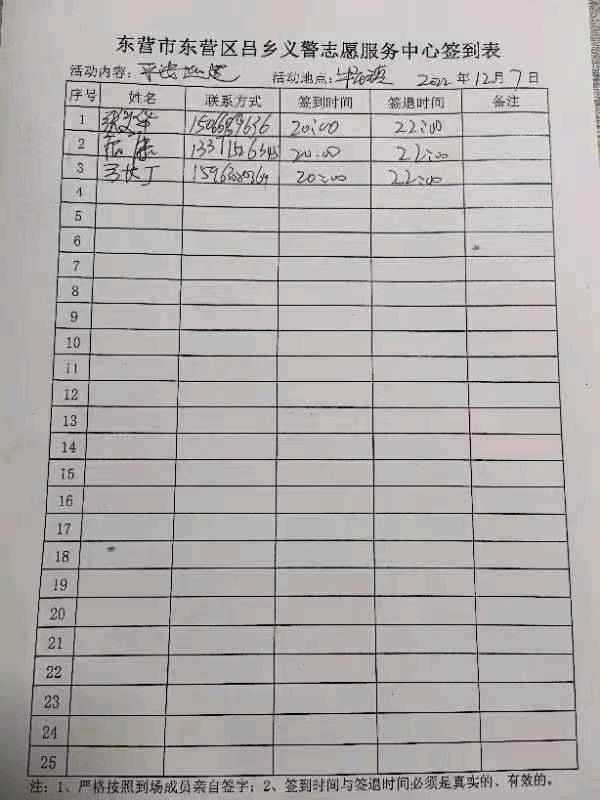 东营市东营区吕乡义警志愿服务中心签到表
活动内容: 平安巡逻 活动地点: 2022年12月7日
序号 姓名 联系方式 签到时间 签退时间 备注
1 20:00 22:00
2 20:00 22:00
3 20:00 22:00
4
5
6
7
8
9
10
11
12
13
14
15
16
17
18
19
20
21
22
23
24
25
注: 1、严格按照到场成员亲自签字; 2、签到时间与签退时间必须是真实的、有效的。